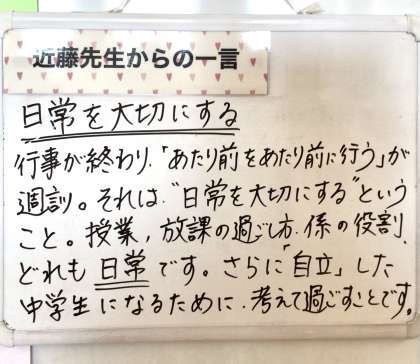 近藤先生からの一言
日常を大切にする
行事が終わり、「あたり前をあたり前に行う」が
週訓。それは、"日常を大切にする"という
こと。授業、放課の過ごし方、係の役割、
どれも日常です。さらに「自立」した
中学生になるために、考えて過ごすことです。